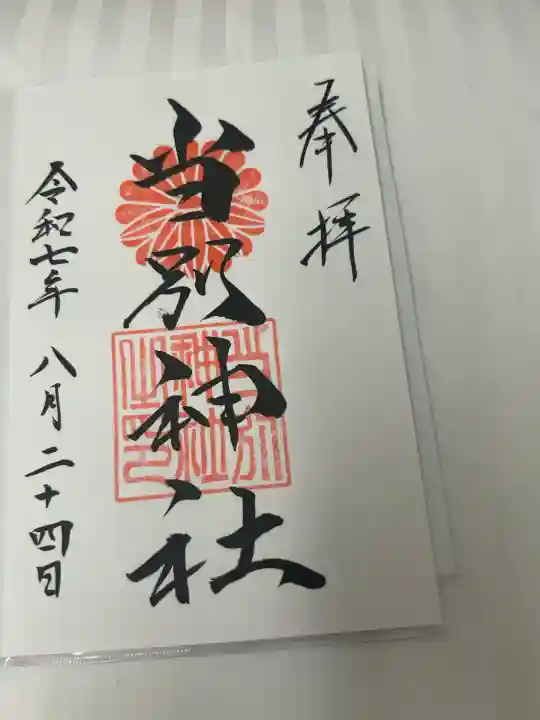 奉拝
当別神社
令和七年 八月二十四日
当別神社之印